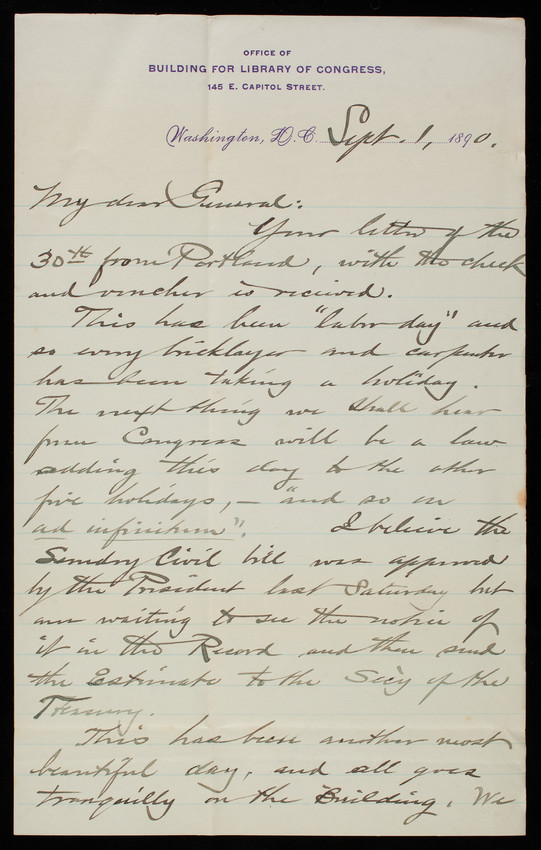 OFFICE OF
BUILDING FOR LIBRARY OF CONGRESS,
145 E. CAPITOL STREET.
Washington, D.C. Sept. 1, 1890.
My dear General:
Your letter of the
30th from Portland, with the check
and voucher is received.
This has been "labor day" and
so every bricklayer and carpenter
has been taking a holiday.
The next thing we shall hear
from Congress will be a law
adding this day to the other
five holidays, – "and so on
ad infinitum". I believe the
Sundry Civil bill was approved
by the President last Saturday but
am waiting to see the notice of
it in the Record and then send
the Estimate to the Sec'y of the
Treasury.
This has been another most
beautiful day, and all goes
tranquilly on the Building. We